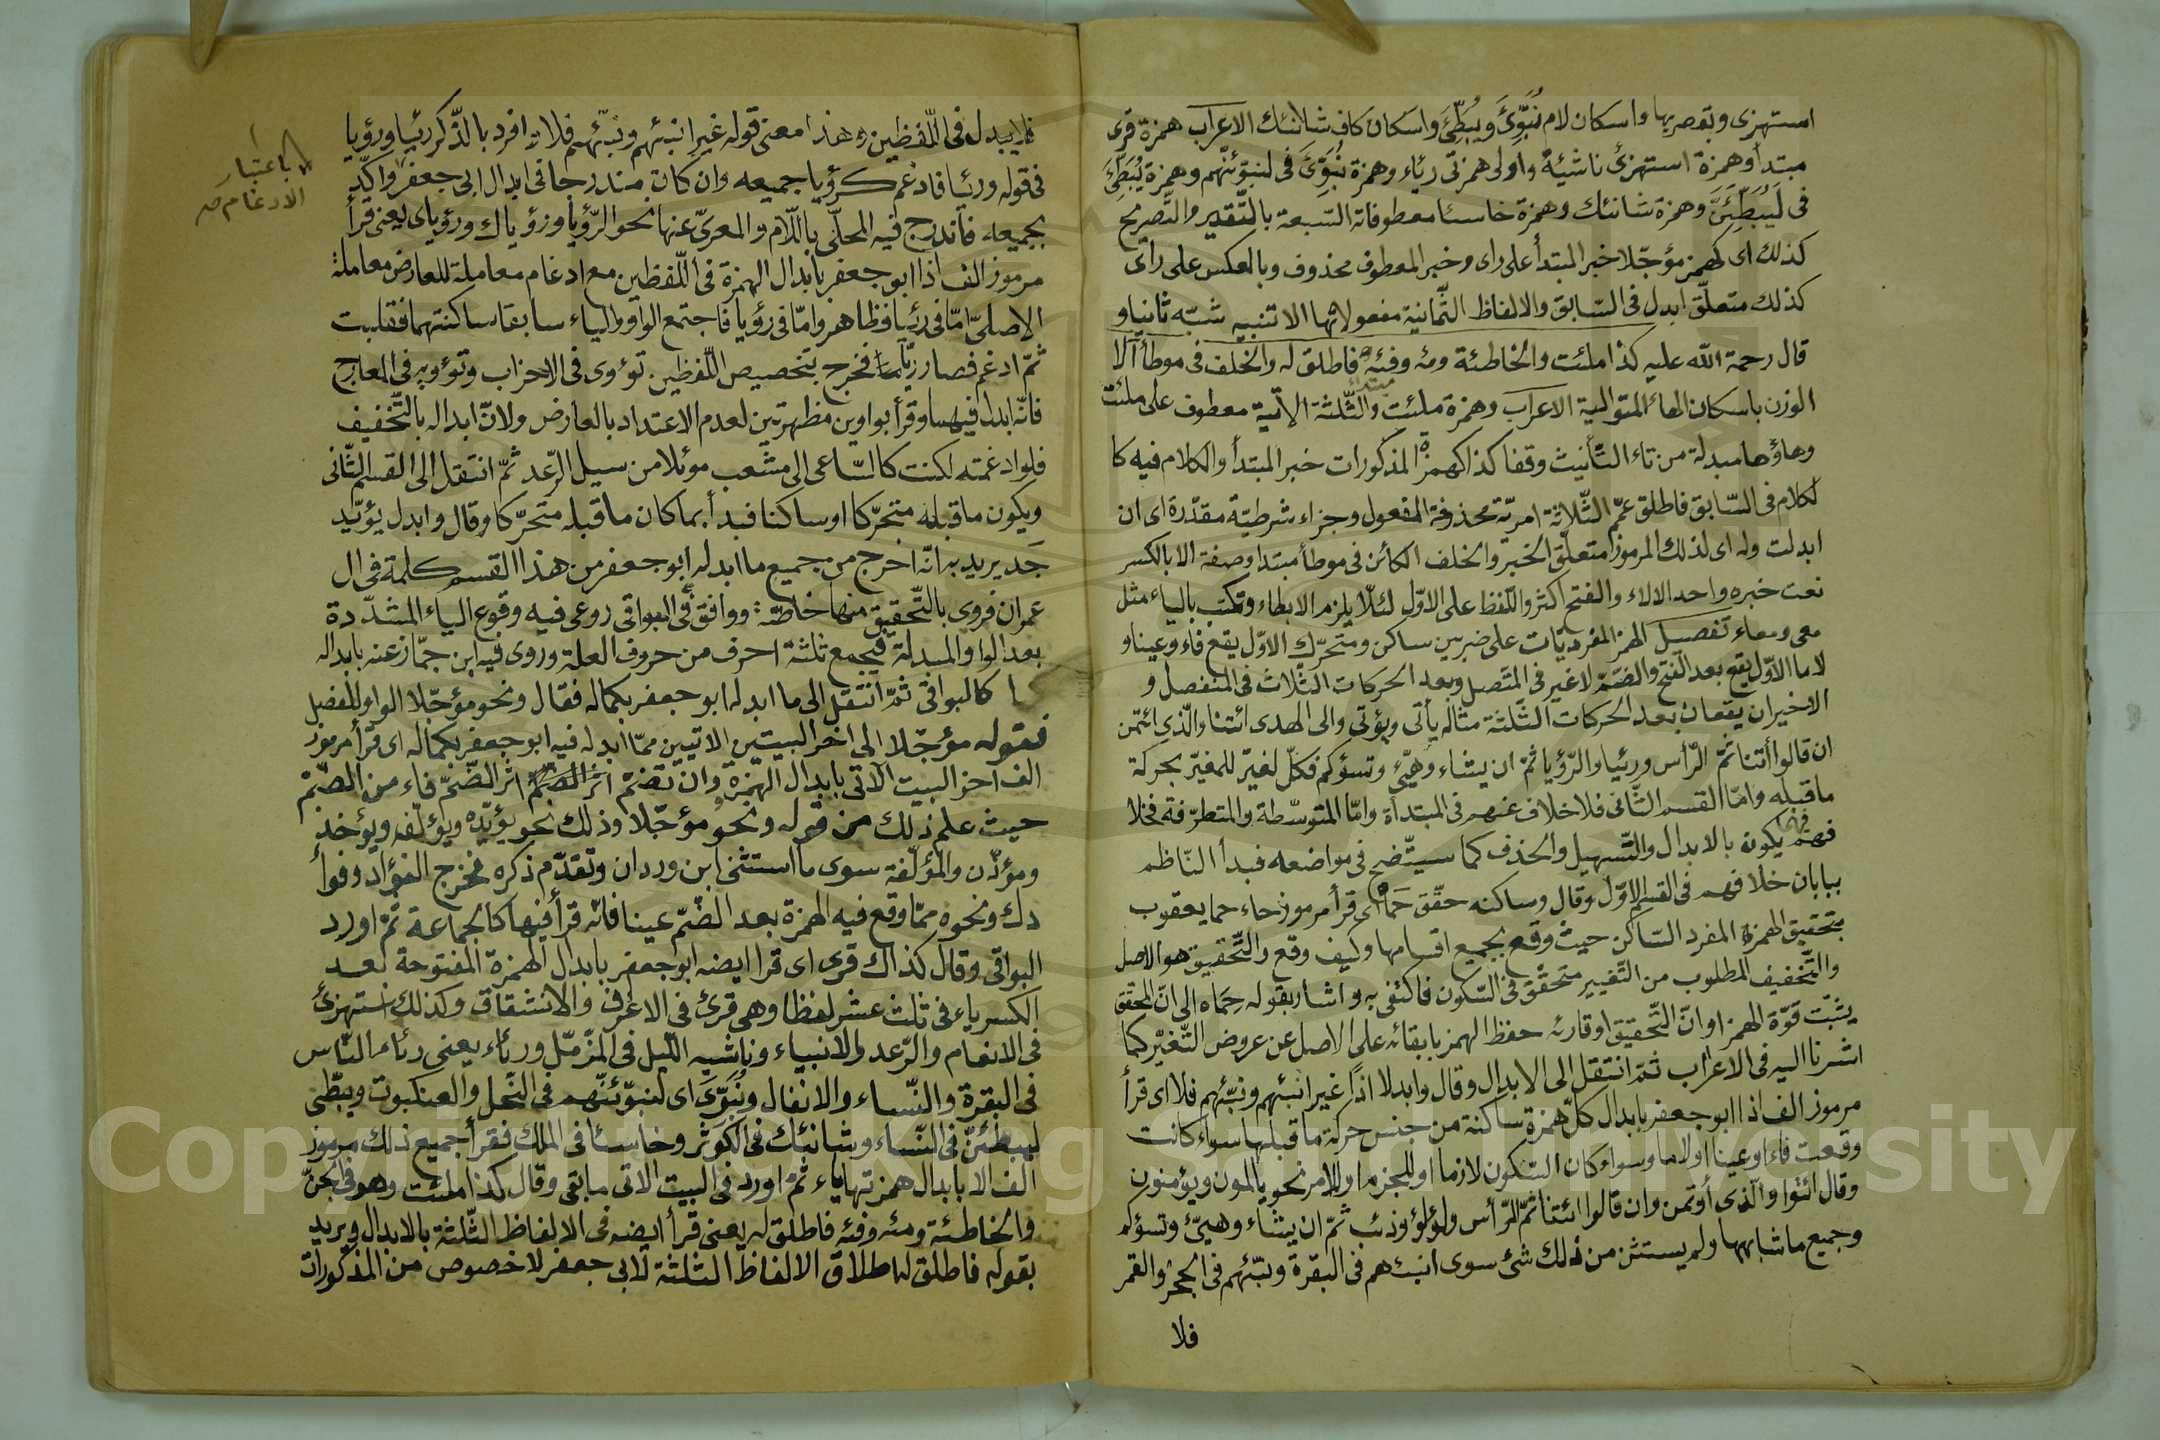 استهزى وبقصريها واسكان لام نُبَوِّئَ ويُبَطِّئَ واسكان كاف شانئك الاعراب همزة قرى
مبتدأ وهمزة استهزئ ناشئة واولى همزتى رئاء وهمزة نُبَوِّئَ فى لنبوّئنّهم وهمزة يُبَطِّئَ
فى لَيُبَطِّئَنَّ وهمزة شانئك وهمزة خاسئا معطوفاته السّبعة بالتّقدير والتّصريح
كذلك اى كهمز مؤجّلا خبر المبتدأ على راى وخبر المعطوف محذوف وبالعكس على رأى
كذلك متعلّق ابدل فى السّابق والالفاظ الثّمانية مفعولاتها الا تنبيه شبّه ثانيا و
قال رحمة الله عليه كذا ملئت والخاطئة ومئه وفئه فاطلق له والخلف فى موطأ آلا
الوزن باسكان الهاء المتوالية الاعراب وهمزة مليئت مبتدأ والثّلثة الآتية معطوف على ملئت
وهاؤها مبدلة من تاء التّأنيث وقفا كذا كهمزة المذكورات خبر المبتدأ والكلام فيه كا
لكلام فى السّابق فاطلق عمّم الثّلاثة امريّة محذوفة المفعول وجزاء شرطيّة مقدّرة اى ان
ابدلت وله اى لذلك المرموز متعلّق الخبر والخلف الكائن فى موطأ مبتدا وصفة الا بالكسر
نعت خبره واحد الالاء والفتح اكثر واللّفظ على الاوّل لئلّا يلزم الابطاء وتكتب بالياء مثل
معى ومعاء تفصيل الهمز المفرد يأت على ضربين ساكن ومتحرّك الاوّل يقع فاء وعينا و
لاما الاوّل يقع بعد الفتح والضّمّ لا غير فى المتّصل وبعد الحركات الثّلاث فى المنفصل و
الاخيران يقعان بعد الحركات الثّلثة مثاله يأتى ويؤتى والى الهدى ائتنا والّذى ائتمن
ان قالوا أتنا ثمّ الرّأس ورئيا والرّؤيا ثمّ ان يشاء وهيّئ وتسؤكم فكلّ لغيّر للمغيّر بحركة
ما قبله وامّا القسم الثّانى فلا خلاف عنهم فى المبتدأة وامّا المتوسّطة والمتطرّفة فخلا
فهم فيها يكون بالابدال والتّسهيل والحذف كما سيتّضح فى مواضعه فبدأ النّاظم
ببيان خلافهم فى القسم الاوّل وقال وساكنه حقّق حَمَاه اى قرأ مرموز حاء حما يعقوب
بتحقيق الهمزة المفرد السّاكن حيث وقع بجميع اقسامها وكيف وقع والتّحقيق هو الاصل
والتّخفيف المطلوب من التّغيير متحقّق فى السّكون فاكتفى به واشار بقوله حِمَاه الى انّ المحقّق
يثبّت قوّة الهمز او انّ التّحقيق او قارئه حفظ الهمز بابقائه على الاصل عن عروض التّغيّر كما
اشرنا اليه فى الاعراب ثمّ انتقل الى الابدال وقال وابدلا اذًا غير انبئهم ونبّئهم فلا اى قرأ
مرموز الف اذا ابو جعفر بابدال كلّ همزة ساكنة من جنس حركة ما قبلها سواء كانت
وقعت فاء او عينا او لاما وسواء كان السّكون لازما او للجزم او للامر نحو يالمون ويؤمنون
وقال ائتوا والّذى أوتمن وان قالوا ائتنا ثمّ الرّأس ولؤلؤ وذئب ثمّ ان يشاء وهيّئ وتسؤكم
وجميع ما شابهها ولم يستثن من ذلك شئ سوى انبئهم فى البقرة ونبّئهم فى الحجر والقمر
فلا
فلا يبدل فى اللّفظين وهذا معنى قوله غير انبئهم ونبّئهم فلا ثمّ افرد بالذّكر رئيا ورؤيا
فى قوله ورئيا فادغم كرؤيا جميعه وان كان مندرجا فى ابدال ابى جعفر واكّد
باعتبار
الادغام صح
بجميعه فاندرج فيه المحلّى باللّام والمعرىّ عنها نحو الرّؤيا ورؤياك ورؤياى يعنى قرأ
مرموز الف اذا ابو جعفر بابدال الهمزة فى اللّفظين مع ادغام معاملة للعارض معاملة
الاصلىّ امّا فى رئيا فظاهر وامّا فى رؤيا فاجتمع الواو والياء سابقا ساكنتهما فقلبت
ثمّ ادغم فصار ريّا فخرج بتخصيص اللّفظين تؤوى فى الاحزاب وتؤويه فى المعارج
فانّه ابدل فيهما وقرأ بواوين مظهرتين لعدم الاعتداد بالعارض ولانّ ابداله بالتّخفيف
فلو ادغمته لكنت كالسّاعى الى مثعب موئلا من سيل الرّعد ثمّ انتقل الى القسم الثّانى
ويكون ما قبله متحرّكا او ساكنا فبدأ بما كان ما قبله متحرّكا وقال وابدل يؤيّد
جَد يريد به انّه اخرج من جميع ما ابدله ابو جعفر من هذا القسم كلمة فى ال
عمران فروى بالتّحقيق منها خاصّة ووافق فى البواقى روعى فيه وقوع الياء المشدّدة
بعد الواو المبدلة فيجمع ثلثة احرف من حروف العلة وروى فيه ابن جمّاز عنه بابداله
كالبواقى ثمّ انتقل الى ما ابدله ابو جعفر بكماله فقال ونحو مؤجّلا الواو للفصل
فقوله مؤجّلا الى اخر البيتين الاتيين ممّا ابدله فيه ابو جعفر بكماله اى قرأ مرموز
الف اخر البيت الآتى بابدال الهمزة وان تضمّ اثر الضّمّ فاء من الضّمّ
حيث علم ذلك من قوله ونحو مؤجّلا وذلك نحو يؤيّده ويؤلّف ويؤخذ
ومؤذّن والمؤلّفة سوى ما استثنى ابن وردان وتقدّم ذكره فخرج الفؤاد وفوأ
دك ونحوه ممّا وقع فيه الهمزة بعد الضّمّ عينا فانّه قرأ فيها كالجماعة ثمّ اورد
البواقى وقال كذاك قرى اى قرا ايضه ابو جعفر بابدال الهمزة المفتوحة بعد
الكسر ياء فى ثلث عشر لفظا وهى قرئ فى الاعراف والانشقاق وكذلك استهزئ
فى الانعام والرّعد والانبياء وناشيه اللّيل فى المزّمّل ورئاء يعنى رئاء النّاس
فى البقرة والنّساء والانفال ونُبَوِّىَ اى لنبوّئنّهم فى النّحل والعنكبوت ويبطّى
ليبطّئنّ فى النّساء وشانئك فى الكوثر وخاسئا فى الملك فقرأ جميع ذلك مرموز
الف الا بابدال همزتها ياء ثمّ اورد فى البيت الاتى ما بقى وقال كذا ملئت وهو فى الجنّ
والخاطئة ومئه وفئه فاطلق له يعنى قرأ ايضه فى الالفاظ الثّلثة بالابدال ويريد
بقوله فاطلق له اطلاق الالفاظ الثلثة لابى جعفر لا خصوص من المذكورات
Copyright © King Saud University